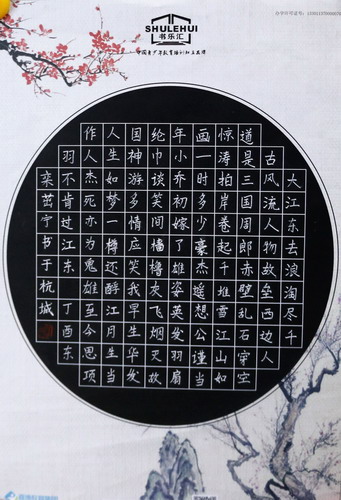 SHULEHUI
书乐汇
大江东去浪淘尽千
古风流人物故垒西边人
道是三国周郎赤壁乱石穿空
惊涛拍岸卷起千堆雪江山如
画一时多少豪杰遥想公谨当
年小乔初嫁了雄姿英发羽扇
纶巾谈笑间樯橹灰飞烟灭故
国神游多情应笑我早生华发
人生如梦一樽还酹江月生当
作人杰死亦为鬼雄至今思项
羽不肯过江东 丁酉东
栾茁宁书于杭城